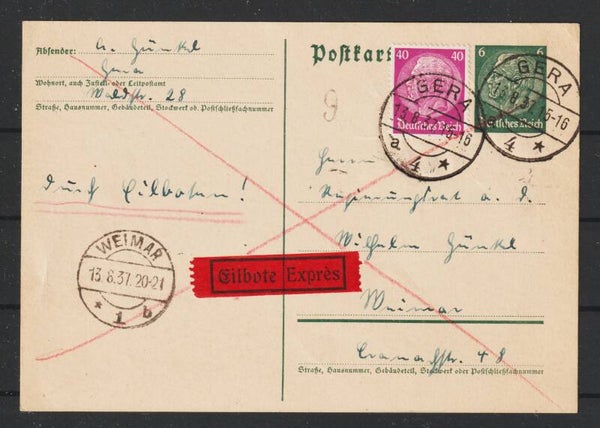 Absender: A. Günkel
Gera
Wohnort, auch Zustell- oder Leitpostamt
Waldstr. 28
Straße, Hausnummer, Gebäudeteil, Stockwerk od. Postschließfachnummer
Postkarte
40 40
Deutsches Reich
6 6
Deutsches Reich
GERA
13.8.37. 15-16
a 4 *
GERA
13.8.37. 15-16
4 *
Herrn
Regierungsrat a. d.
Wilhelm Günkel
Weimar
Cranachstr. 48
Straße, Hausnummer, Gebäudeteil, Stockwerk oder Postschließfachnummer
durch Eilboten!
WEIMAR
13.8.37. 20-21
* 1 b
Eilbote Exprès